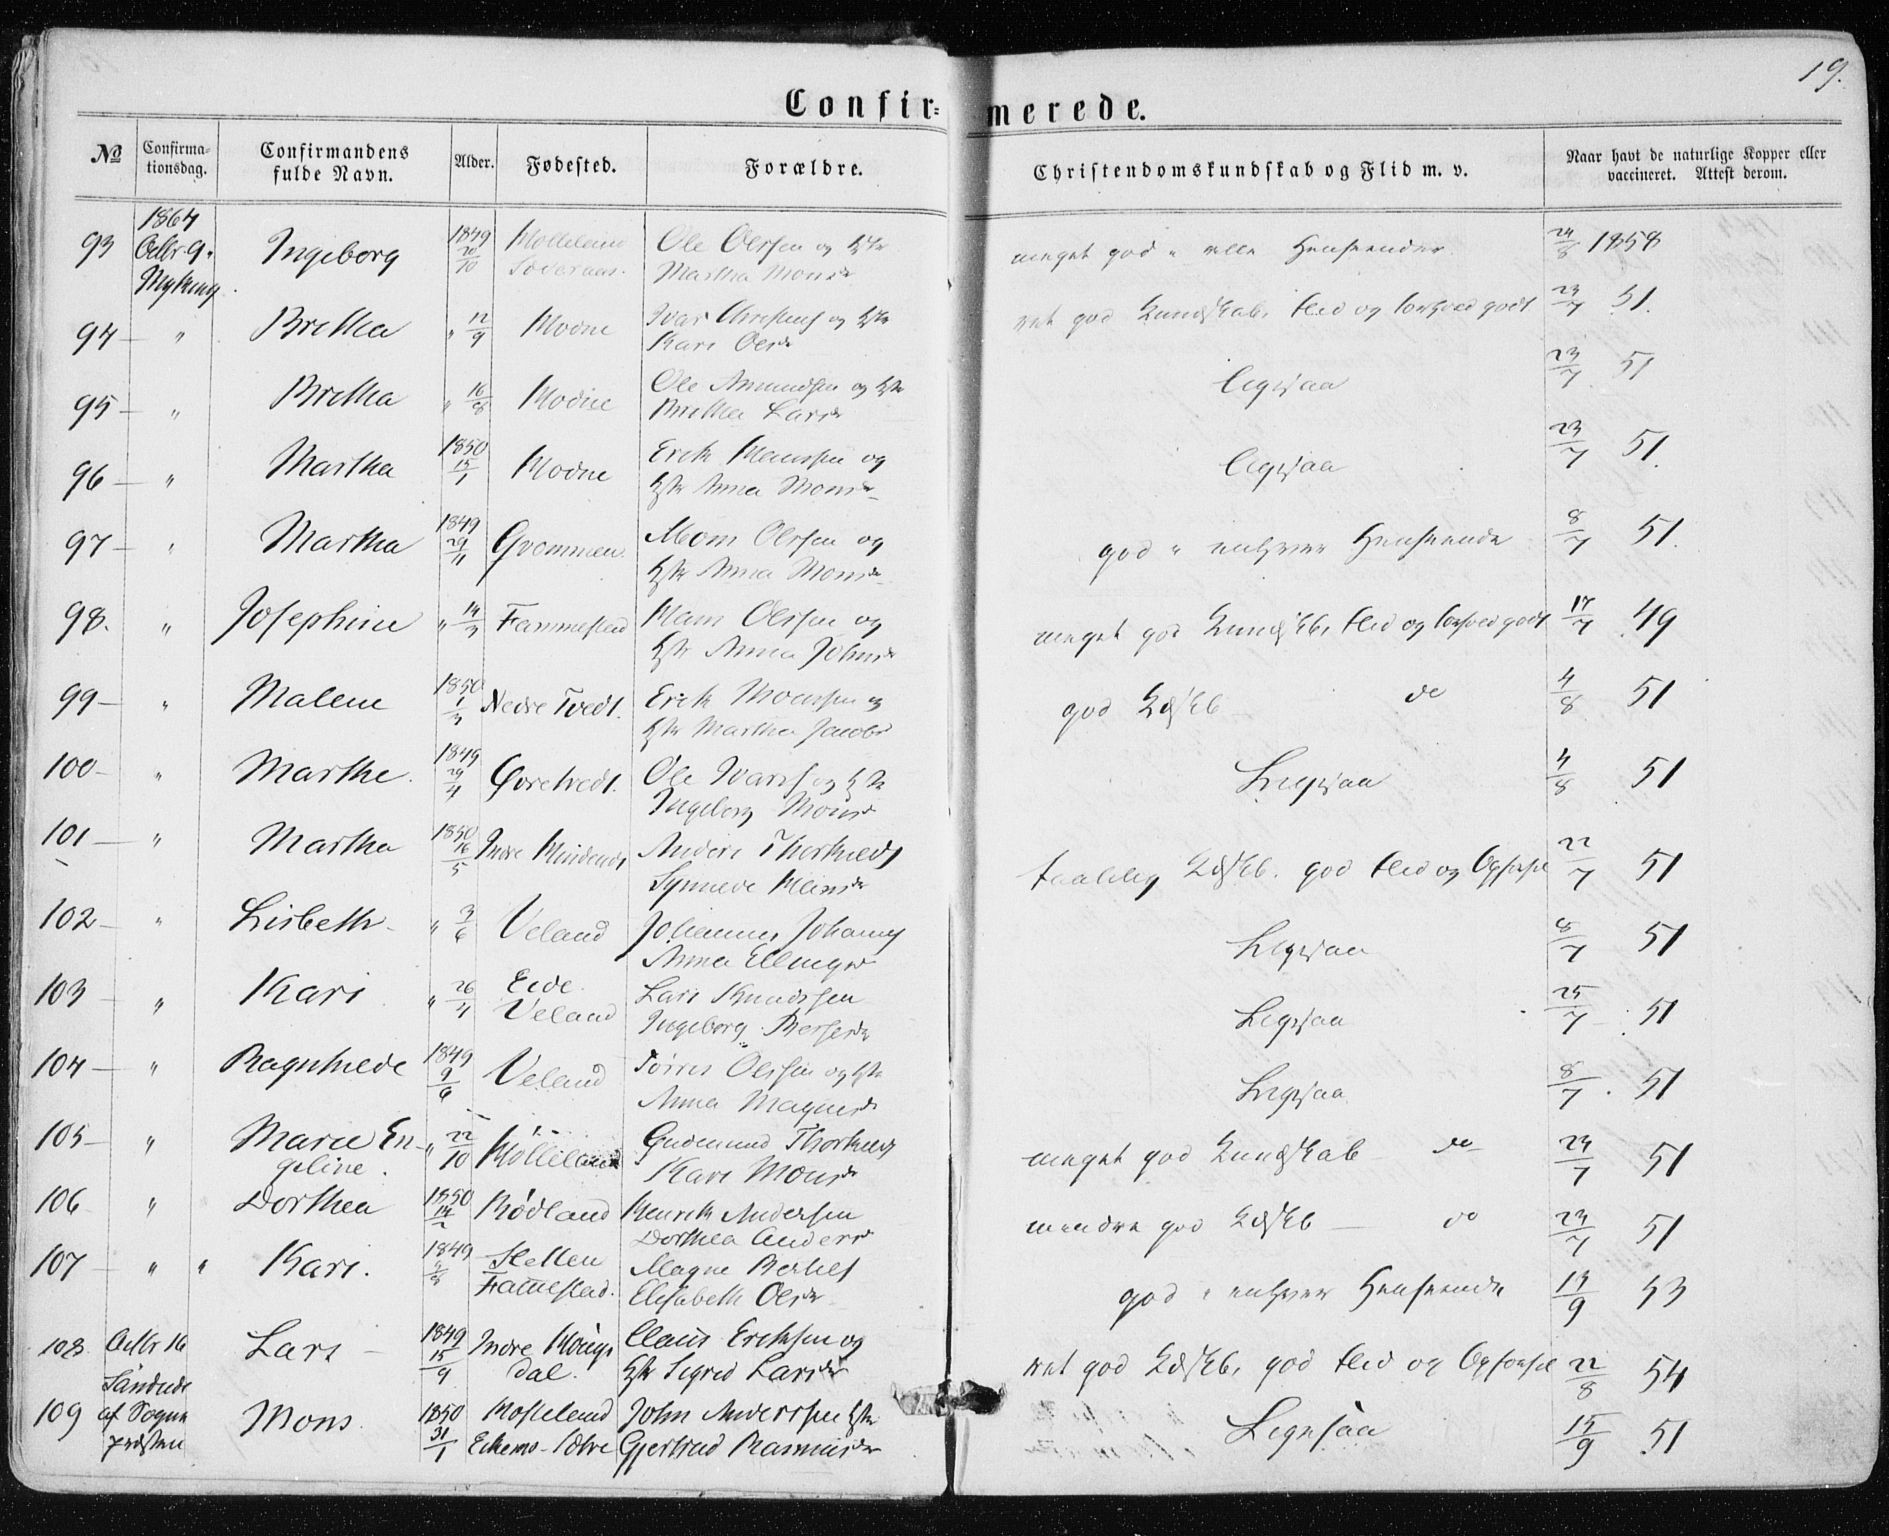 19.
Confirmerede.
№ Confirmationsdag. Confirmandens fulde Navn. Alder. Fødested. Forældre. Christendomskundskab og Flid m. v. Naar havt de naturlige Kopper eller vaccineret. Attest derom.
93 1864 Octbr 9. Myking Ingeborg 1849 20/10 Molleland Ole Olssen og Hstr Martha Monsdr meget god i alle Henseender 24/8 1858
94 — " Brittha " 12/9 Modne Ivar og Hstr Kari Olsdr ret god Kundskab, Flid og Forhold godt 23/7 51.
95 — " Brittha " 16/8 Modne Ole Amundsen og Hstr Brittha Larsdr Ligesaa 23/7 51
96 — " Martha 1850 15/1 Modne Erik Monssen og Hstr Anna Monsdr Ligesaa 23/7 51.
97 — " Martha 1849 29/11 Gvommen Mons Olssen og Hstr Anna Monsdr god i enhver Henseende 8/7 51.
98. " Josephine " 14/3 Fammestad Mons Olssen og Hstr Anna Johnsdr meget god Kundskb, Flid og Forhold godt 17/7 49
99 — " Malene 1850 1/3 Nedre Tvedt. Erik Monssen og Hstr Martha Jacobsdr god Kdskb — do 4/8 51
100 — " Marthe. 1849 29/4 Øvretvedt. Ole Ivars og Hstr Ingeborg Monsdr Ligesaa 4/8 51
101 — " Martha 1850 16/5 Indre Anders Thorkilds Synneve Monsdr taalelig Kdskb. god Flid og Opførsel 22/7 51
102 — " Lisbeth " 3/6 Veland Johannes Johannes Anna Ellingsdr Ligesaa 8/7 51
103 — " Kari " 26/4 Eide Veland Lars Knudssen Ingeborg Ligesaa 25/7 51
104 — " Ragnhilde 1849 9/6 Veland Torres Olssen og Hstr Anna Magnesdr Ligesaa 8/7 51
105 — " Marie Engeline. " 22/10 Mölleland Gudmund Thorkilds Kari Monsdr meget god Kundskab — do 24/7 51
106 " Dorthea 1850 14/2 Rödland Henrik Andersen Dorthea Andersdr mindre god Kdskb — do 23/7 51
107 — " " Kari. 1849 Sletten Famestad. Magne Berthels Elisabeth Olsdr god i enhver Henseende 13/9 53
108. Octbr 16 Lars — 1849 15/9 Indre dal. Claus Erikssen og Hstr Sigrid Larsdr ret god Kdskb, god Flid og Opførsel 22/8 54
109 af Sogne præsten Mons 1850 31/1 Mosteland John Anderssen Hstr Gjertrud Rasmusdr Ligesaa 15/9 51